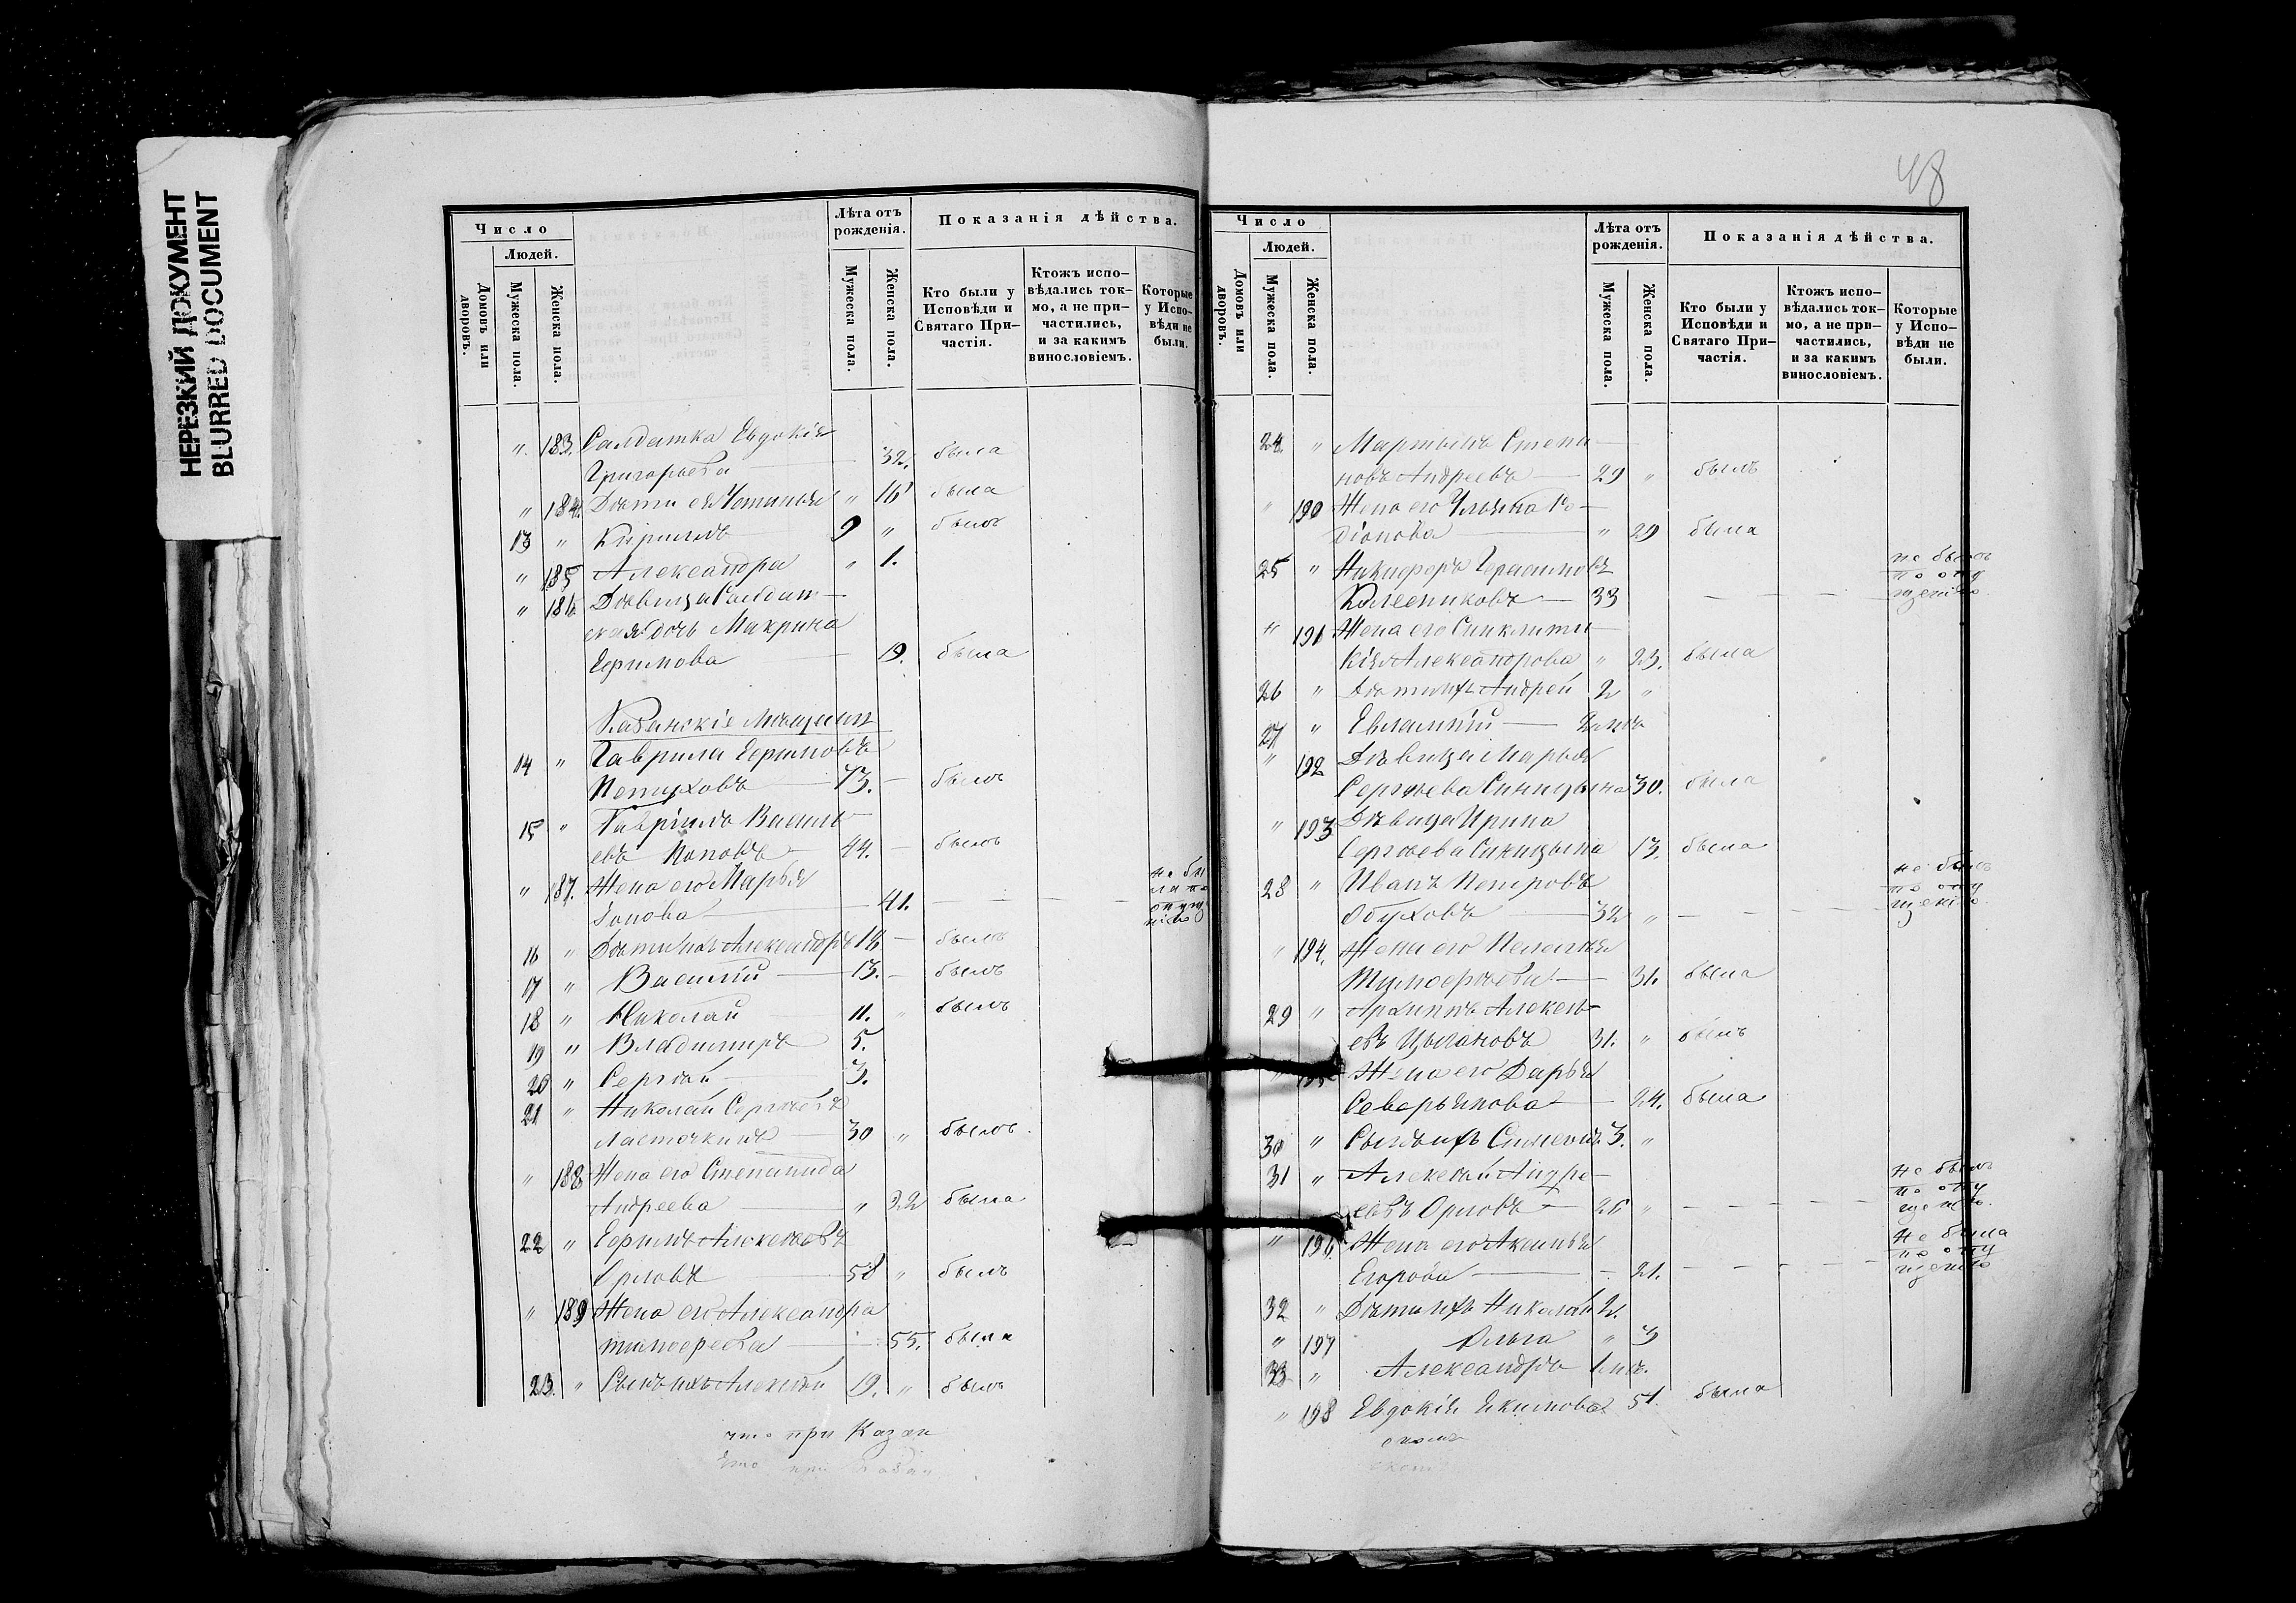 НЕРЕЗКИЙ ДОКУМЕНТ
BLURRED DOCUMENT
Число
Людей.
Домовъ или дворовъ.
Мужеска пола.
Женска пола.
Лѣта отъ рожденія.
Мужеска пола.
Женска пола.
Показанія дѣйства.
Кто были у Исповѣди и Святаго При–частія.
Ктожъ испо–вѣдались ток–мо, а не при–частились, и за какимъ винословіемъ.
Которые у Испо–вѣди не были.
" 183. Салдатка Евдокія
Григорьева — 32. была
" 184. Дѣти ея Устинья " 16 была
13 " Кирилъ 9 " былъ
" 185 Александра " 1.
" 186. Дѣвица Салдат–
ская дочь Макрина
Ефимова — 19. была
Казанскіе Мѣщани
14 " Гаврила Ефимовъ
Петуховъ — 73. — былъ
15 " Гаврилъ Василь–
евъ Поповъ — 44. — былъ
" 187. Жена его Марья
Іонова — 41. — — — не бы
ла по
опущ
нію
16 " Дѣти ихъ Александръ 16 — былъ
17 " Василій — 13. — былъ
18 " Николай 11. " былъ
19 " Владимиръ 5.
20 " Сергѣй 3.
21 " Николай Сергѣевъ
Ласточкинъ — 30 " былъ.
" 188 Жена его Степанида
Андреева — " 22 была
22 " Ефимъ Алексѣевъ
Орловъ — 58 " былъ
" 189 Жена его Александра
Тимофеева — 55. была
23. " Сынъ ихъ Алексѣй 19. " былъ
что при Казан
48
Число
Людей.
Домовъ или дворовъ.
Мужеска пола.
Женска пола.
Лѣта отъ рожденія.
Мужеска пола.
Женска пола.
Показанія дѣйства.
Кто были у Исповѣди и Святаго При–частія.
Ктожъ испо–вѣдались ток–мо, а не при–частились, и за какимъ винословіемъ.
Которые у Испо–вѣди не были.
24. " Мартынъ Степа–
новъ Андреевъ — 29 " былъ
" 190 Жена его Ульяна Ро–
діонова — " 29 была
25 " Никифоръ Герасимовъ
Колесниковъ — 33 — — — не былъ
по опу
щенію.
" 191 Жена его Синклити–
кія Александрова " 23. была
26 " Дѣти ихъ Андрей 2 "
27 " Евлампій —
" 192 Дѣвица Марья
Сергѣева Синицына 30. была
" 193 Дѣвица Ирина
Сергѣева Синицына 13. была
28 " Иванъ Петровъ
Обуховъ — 32 " — — — не былъ
по опу
щенію.
" 194. Жена его Пелагѣя
Тимофеева — 31. была
29 " Архиппъ Алексѣ–
евъ Цыгановъ 31. " былъ
" 195 Жена его Дарья
Северьянова — 24. была
30 " Сынъ ихъ Симеонъ 3. "
31 " Алексѣй Андре–
евъ Орловъ — 26 " — — — не былъ
по опу
щенію.
" 196. Жена его Аксинья
Егорова — 21. — — — не была
по опу
щенію
32 " Дѣти ихъ Николай 2.
" 197 Ольга " 3
33 " Александръ
" 198 Евдокія Екимова 51. была